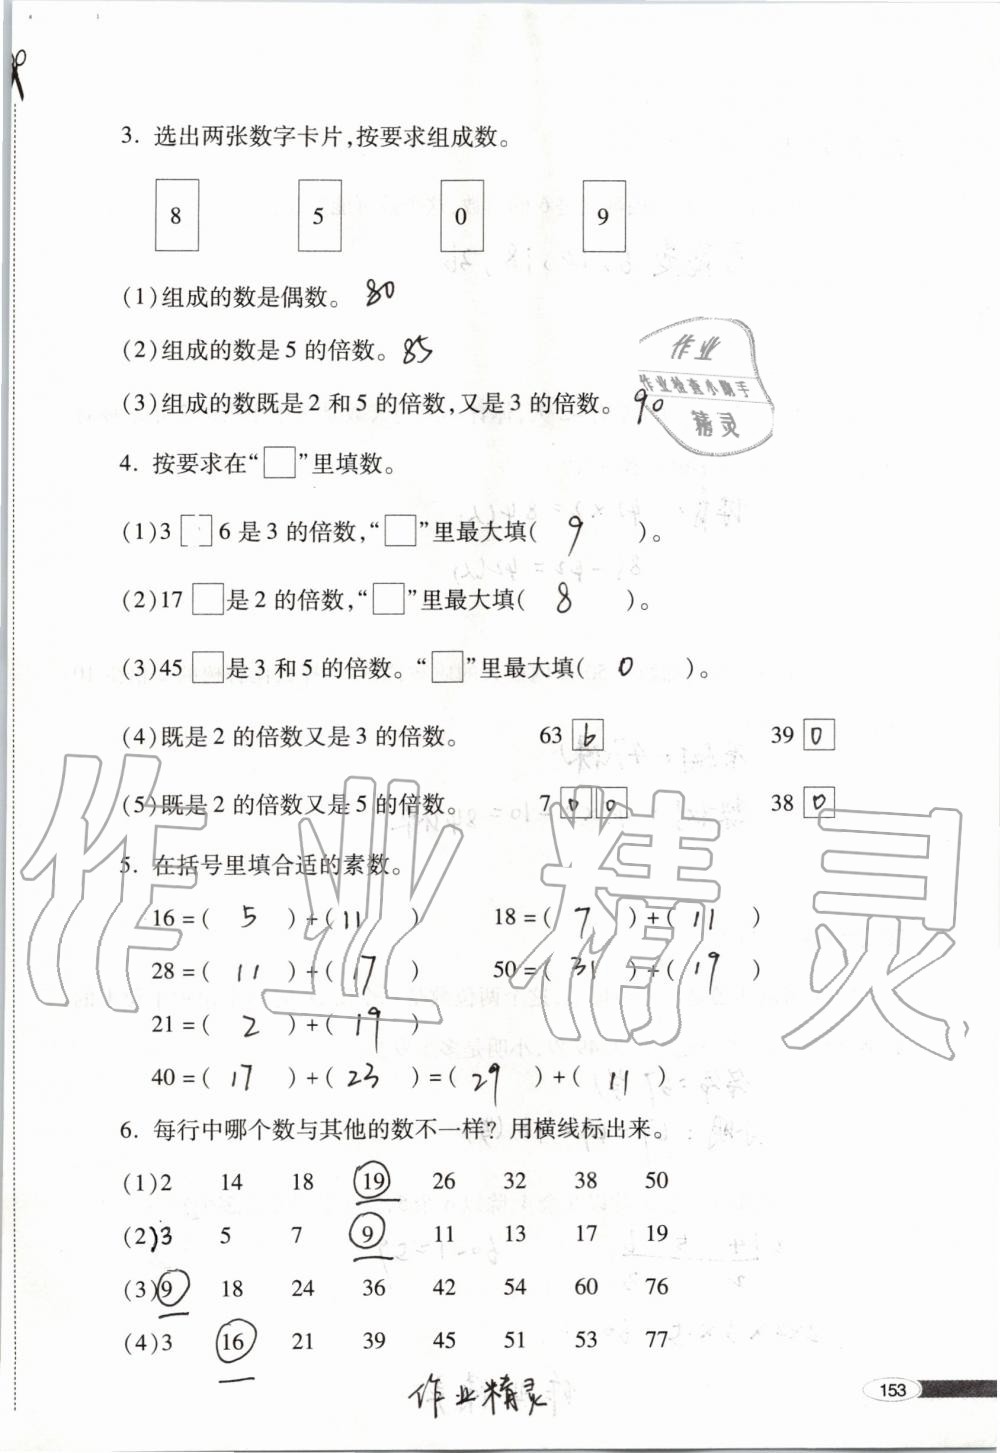 3. 选出两张数字卡片,按要求组成数。
8 5 0 9
(1)组成的数是偶数。 80
(2)组成的数是5的倍数。 85
作业
作业检查小助手
精灵
(3)组成的数既是2和5的倍数,又是3的倍数。 90
4. 按要求在“□”里填数。
(1)3□6是3的倍数,“□”里最大填( 9 )。
(2)17□是2的倍数,“□”里最大填( 8 )。
(3)45□是3和5的倍数。“□”里最大填( 0 )。
(4)既是2的倍数又是3的倍数。 63 6 39 0
(5)既是2的倍数又是5的倍数。 7 0 0 38 0
作业精灵
5. 在括号里填合适的素数。
16=( 5 )+( 11 ) 18=( 7 )+( 11 )
28=( 11 )+( 17 ) 50=( 31 )+( 19 )
21=( 2 )+( 19 )
40=( 17 )+( 23 )=( 29 )+( 11 )
6. 每行中哪个数与其他的数不一样?用横线标出来。
(1)2 14 18 19 26 32 38 50
(2)3 5 7 9 11 13 17 19
(3)9 18 24 36 42 54 60 76
(4)3 16 21 39 45 51 53 77
作业精灵
153